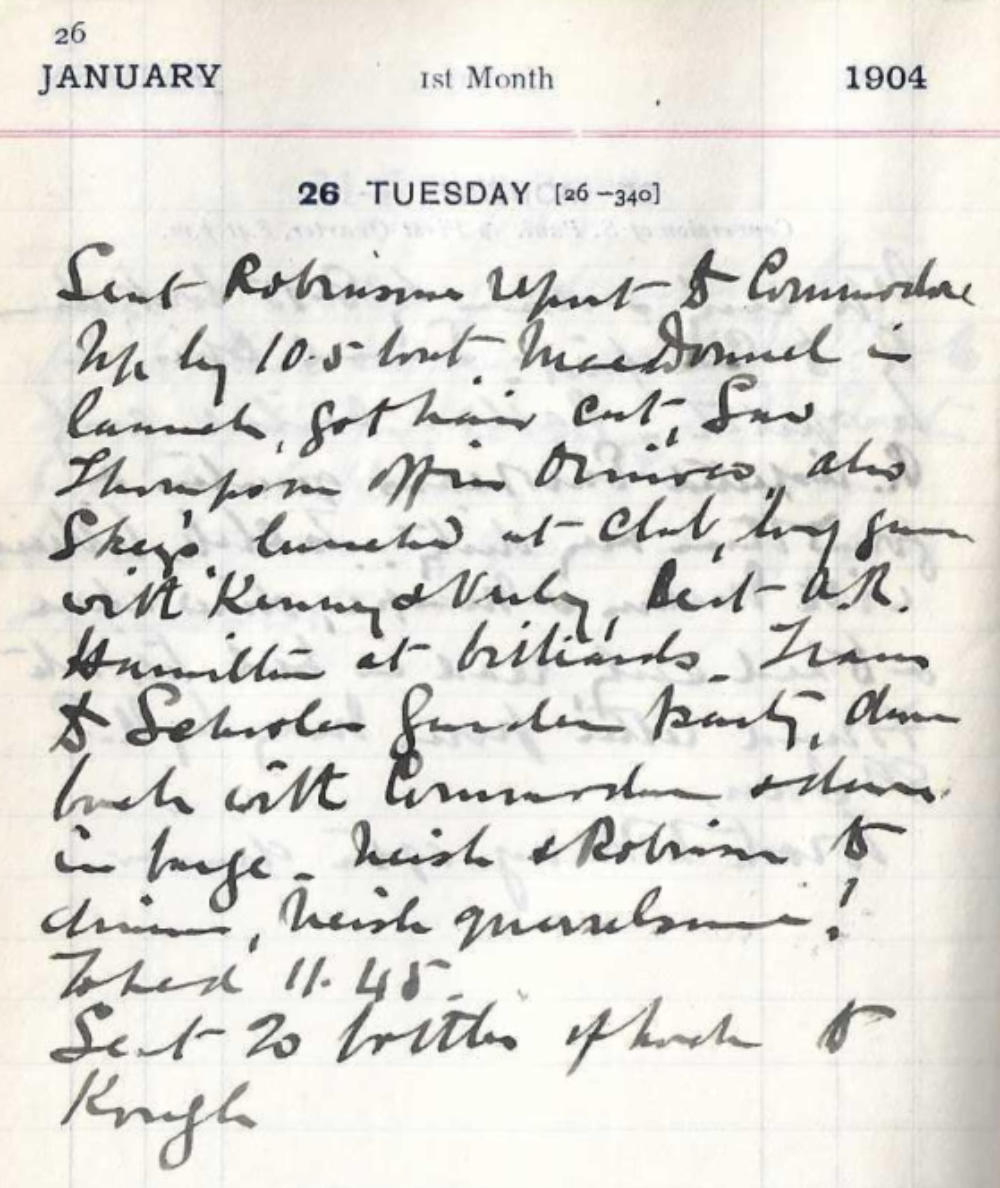 26
JANUARY 1st Month 1904
26 TUESDAY [26-340]
Sent Robinsons report to Commodore
Up by 10.5 boat. MacDonnel in
launch, got hair cut, Saw
Thompson Orinoco, also
lunched at Club, long
with Kenny & Verley, Beat A.R.
Hamilton at billiards. Tram
to Scholes Garden party, drove
back with Commodore & down
in barge. Neish & Robinson to
dinner, Neish quarrelsome!
To bed 11.45.
Sent 20 bottles of hock to
Kough